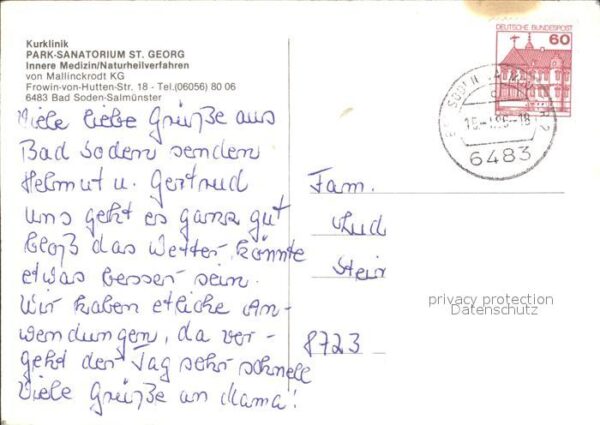 Kurklinik
PARK-SANATORIUM ST. GEORG
Innere Medizin/Naturheilverfahren
von Mallinckrodt KG
Frowin-von-Hutten-Str. 18 - Tel.(06056) 80 06
6483 Bad Soden-Salmünster
Viele liebe Grüße aus
Bad Soden senden
Helmut u. Gertrud
uns geht es ganz gut
bloß das Wetter könnte
etwas besser sein.
Wir haben etliche An-
wendungen, da ver-
geht der Tag sehr schnell
Viele Grüße an Mama!
60
DEUTSCHE BUNDESPOST
6483
Fam.
8723
privacy protection
Datenschutz